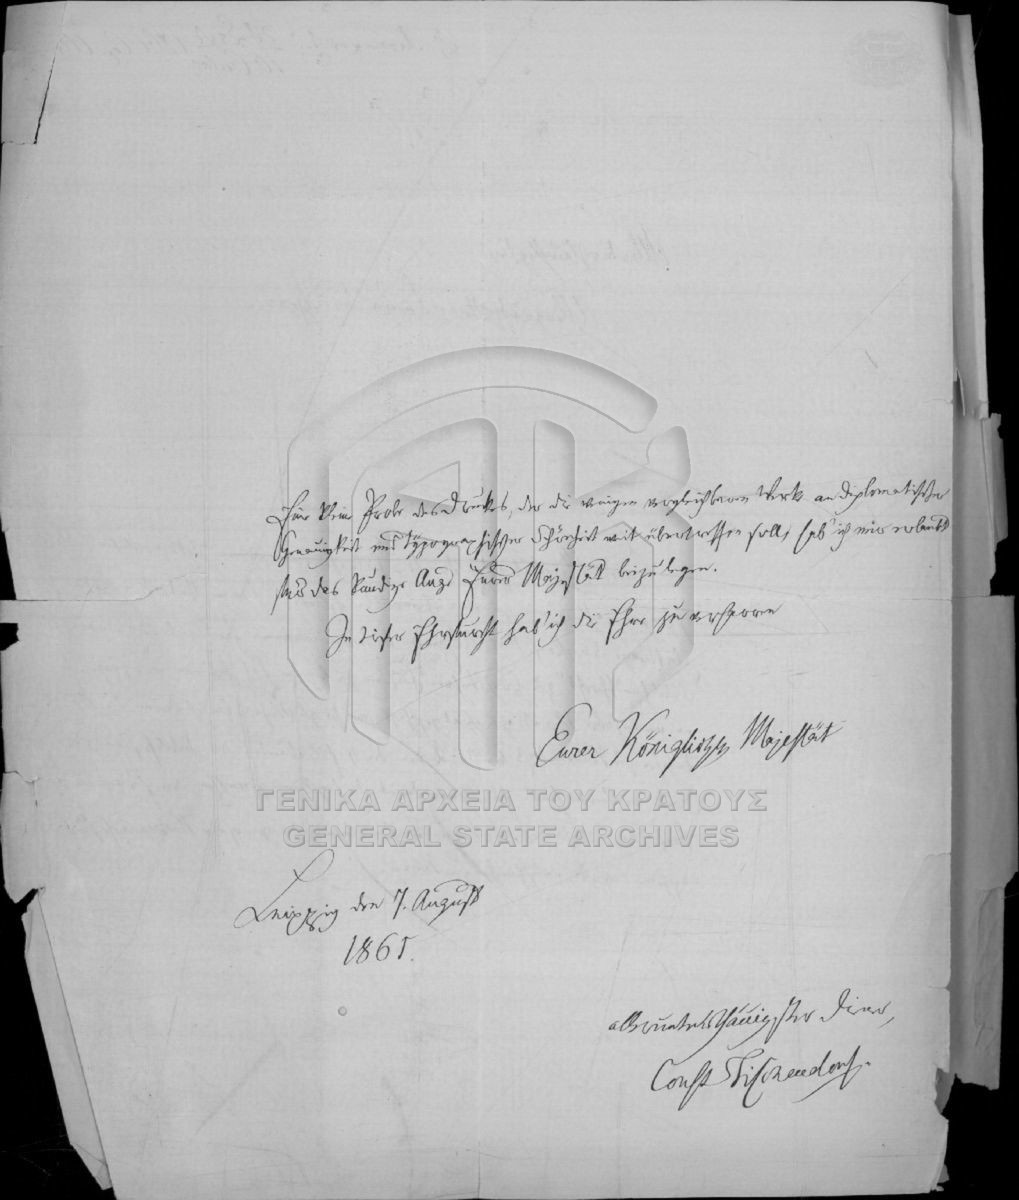 Eine kleine Probe des Drucks, der die wenigen vergleichbaren Werke an diplomatischer
Genauigkeit und typographischer Schönheit weit übertreffen soll, hab' ich mir erlaubt
für das kundige Auge Eurer Majestät beizulegen.
In tiefer Ehrfurcht hab' ich die Ehre zu verharren
Eurer Königlichen Majestät
ΓΕΝΙΚΑ ΑΡΧΕΙΑ ΤΟΥ ΚΡΑΤΟΥΣ
GENERAL STATE ARCHIVES
Leipzig den 7. August
1861.
allerunterthänigster Diener,
Const Tischendorf.